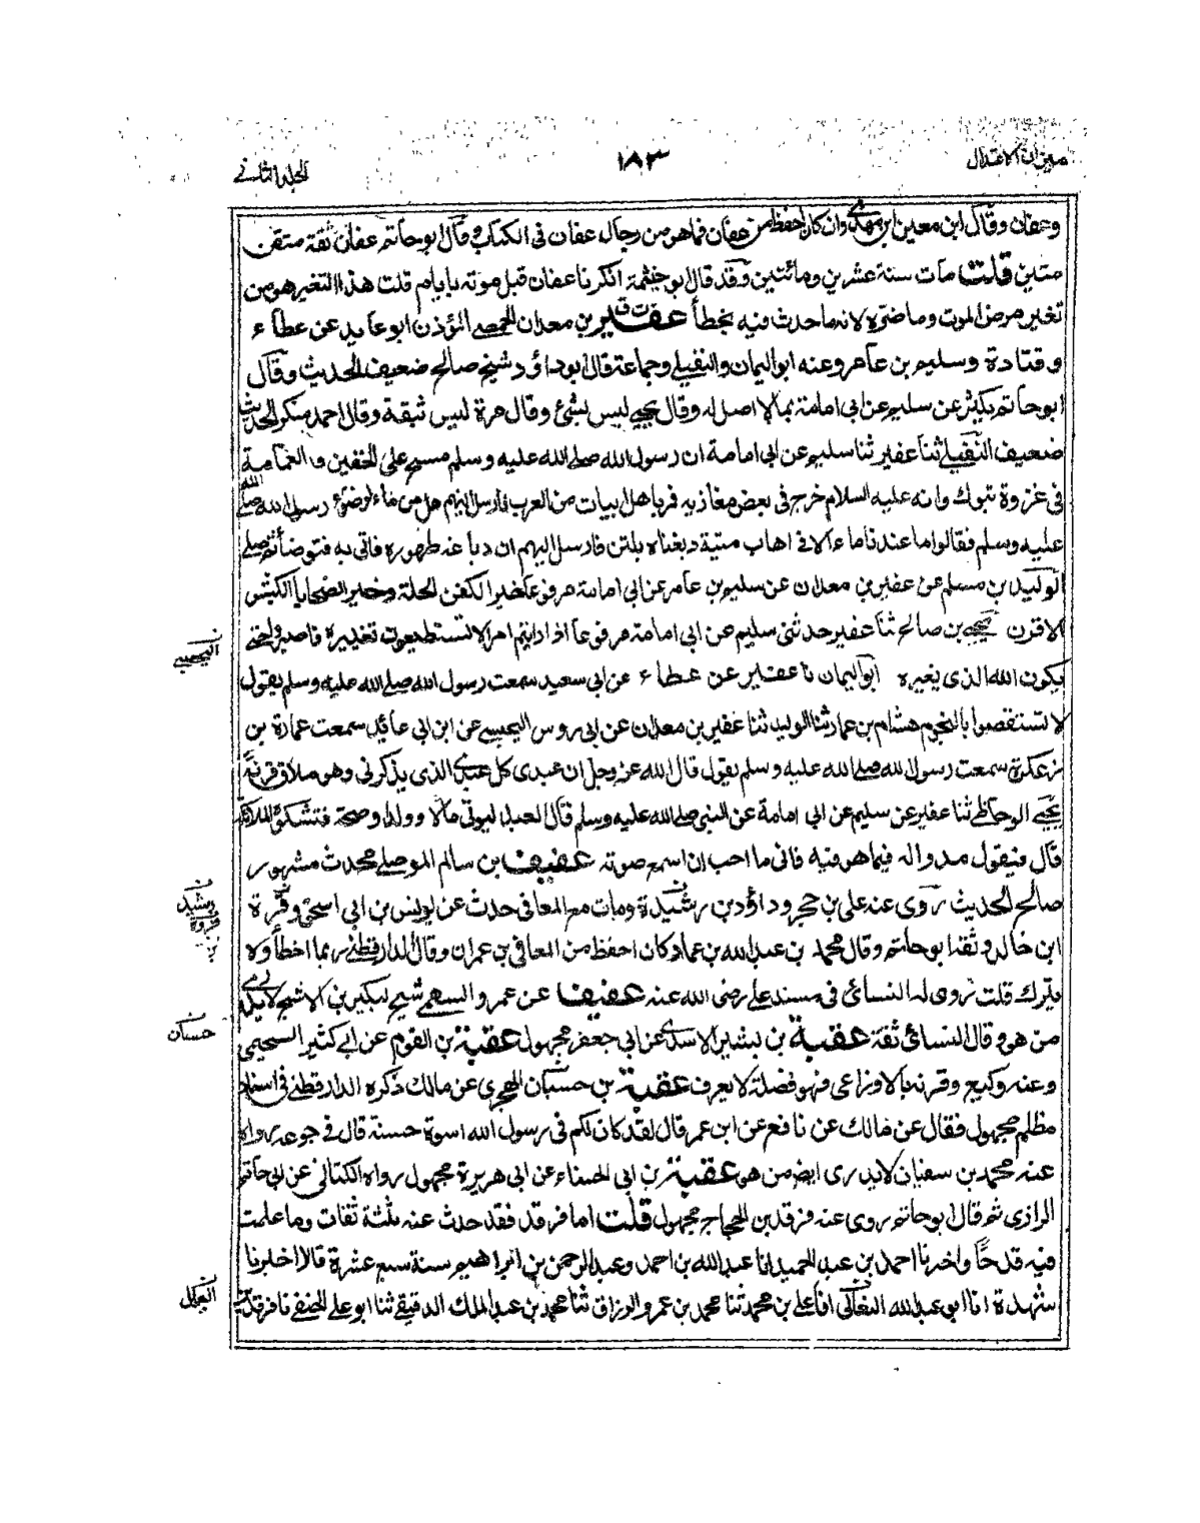 ميزان الاعتدال
١٨٣
الجلد الثاني
وعفان وقال ابن معين ابن مهدي وان كان احفظ من عفان فما هو من رجال عفان في الكتاب وقال ابو حاتم عفان ثقة متقن
متين قلت مات سنة عشرين ومائتين وقد قال ابو خيثمة انكرنا عفان قبل موته بايام قلت هذا التغير هو من
تغير مرض الموت وما ضره لانه ما حدث فيه بخطأ عفير ت ق بن معدان الحمصي المؤذن ابو عايد عن عطاء
وقتادة وسليم بن عامر وعنه ابو اليمان والنفيلي وجماعة قال ابو داؤد شيخ صالح ضعيف الحديث وقال
ابو حاتم يكثر عن سليم عن ابي امامة بما لا اصل له وقال يحيى ليس بشئ وقال مرة ليس بثقة وقال احمد منكر الحديث
ضعيف النفيلي ثنا عفير ثنا سليم عن ابي امامة ان رسول الله صلى الله عليه وسلم مسح على الخفين والعمامة
في غزوة تبوك وانه عليه السلام خرج في بعض مغازيه فمر باهل ابيات من العرب فارسل اليهم هل من ماء لوضوء رسول الله صلى الله
عليه وسلم فقالوا ما عندنا ماء الا في اهاب ميتة دبغناه بلبن فارسل اليهم ان دباغه طهوره فاتي به فتوضأ ثم صلى
الوليد بن مسلم عن عفير بن معدان عن سليم بن عامر عن ابي امامة مرفوعا خير الكفن الحلة وخير الضحايا الكبش
الاقرن يحيى بن صالح ثنا عفير حدثني سليم عن ابي امامة مرفوعا اذا رايتم امرا لا تستطيعون تغييره فاصبروا حتى
يكون الله الذى يغيره ابو اليمان نا عفير عن عطاء عن ابي سعيد سمعت رسول الله صلى الله عليه وسلم يقول
لا تستقصوا بالنجوم هشام بن عمار ثنا الوليد ثنا عفير بن معدان عن ابي روس اليحبسي عن ابن ابي عائذ سمعت عمارة بن
زعكرة سمعت رسول الله صلى الله عليه وسلم يقول قال الله عز وجل ان عبدى كل عبدي الذى يذكرني وهو ملاق قرنه
يحيى الوحاظي ثنا عفير عن سليم عن ابي امامة عن النبي صلى الله عليه وسلم قال العبد ليوتى مالا وولدا وصحة فتشكو الملائكة
قال فيقول مدوا له فيما هو فيه فاني ما احب ان اسمع صوته عفيف بن سالم الموصلي محدث مشهور
صالح الحديث روى عنه علي بن حجر وداؤد بن رشيد ومات مع المعافى حدث عن يونس بن ابي اسحق وقرة
ابن خالد وثقه ابو حاتم وقال محمد بن عبد الله بن عمار كان احفظ من المعافى بن عمران وقال الدارقطني ربما اخطأ ولا
يترك قلت روى له النسائي في مسند علي رضي الله عنه عفيف عن عمرو السهمي شيخ لبكير بن الاشج لا يدرى
من هو وقال النسائي ثقة عقبة بن بشير الاسدي عن ابي جعفر مجهول عقبة بن التوم عن ابي كثير السحيمي
وعنه وكيع وقرنه بالاوزاعي فهو فضلة لا يعرف عقبة بن حسان الهجرى عن مالك ذكره الدارقطني في اسناد
مظلم مجهول فقال عن مالك عن نافع عن ابن عمر قال لقد كان لكم في رسول الله اسوة حسنة قال في جوعه رواه
عنه محمد بن سفيان لا يدرى ايضا من هو عقبة بن ابي الحسناء عن ابي هريرة مجهول رواه الكتاني عن ابي حاتم
الرازى ثم قال ابو حاتم روى عنه فرقد بن الحجاج مجهول قلت اما فرقد فقد حدث عنه ثلثة ثقات وما علمت
فيه قدحا واخبرنا احمد بن عبد الحميد انا عبد الله بن احمد وعبد الرحمن بن ابراهيم سنة سبع عشرة قالا اخبرنا
شهدة انا ابو عبد الله النعالى انا علي بن محمد ثنا محمد بن عمرو الرزاز ثنا محمد بن عبد الملك الدقيقي ثنا ابو علي الحنفي نا فرقد
اليحصبي
رشيد
حسان